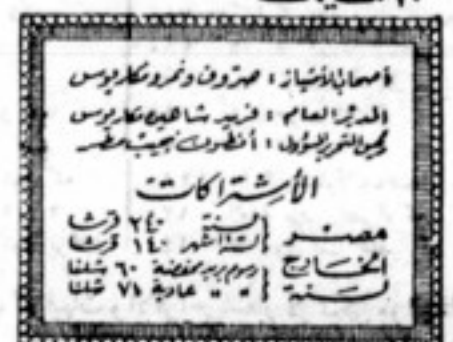 أصحاب الامتياز : صروف ونمر ومكاريوس
المدير العام : فريد شاهين مكاريوس
رئيس التحرير المسؤول : أنطون نجيب مطر
الاشتراكات
مصر { السنة ٢٤٠ قرشا
{ الستة اشهر ١٤٠ قرشا
الخارج { رسوم بريد مخفضة ٦٠ شلنا
لسنة { " " عادية ٧٨ شلنا